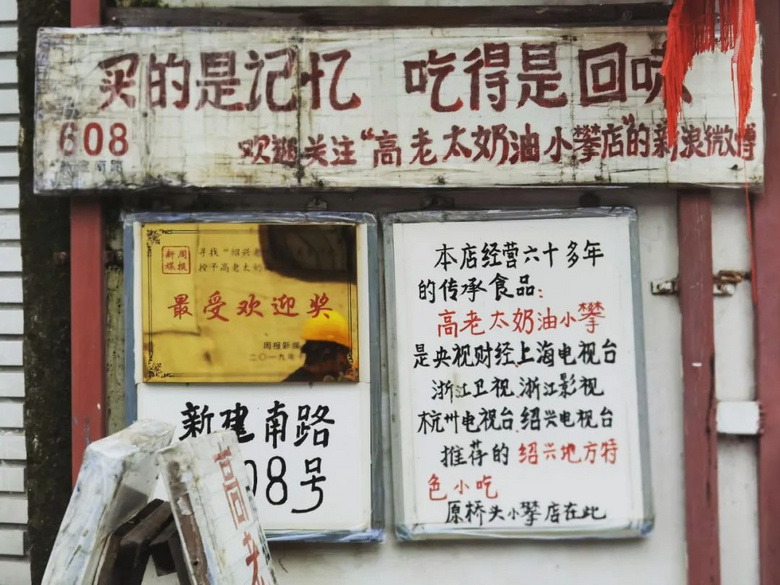 买的是记忆 吃得是回味
608
欢迎关注“高老太奶油小攀店”的新浪微博
新建南路
周报新媒
寻找“绍兴老
授予高老太奶
最受欢迎奖
周报新媒
二〇一九年
新建南路
08号
高老
本店经营六十多年
的传承食品：
高老太奶油小攀
是央视财经上海电视台
浙江卫视、浙江影视
杭州电视台、绍兴电视台
推荐的绍兴地方特
色小吃
原桥头小攀店在此